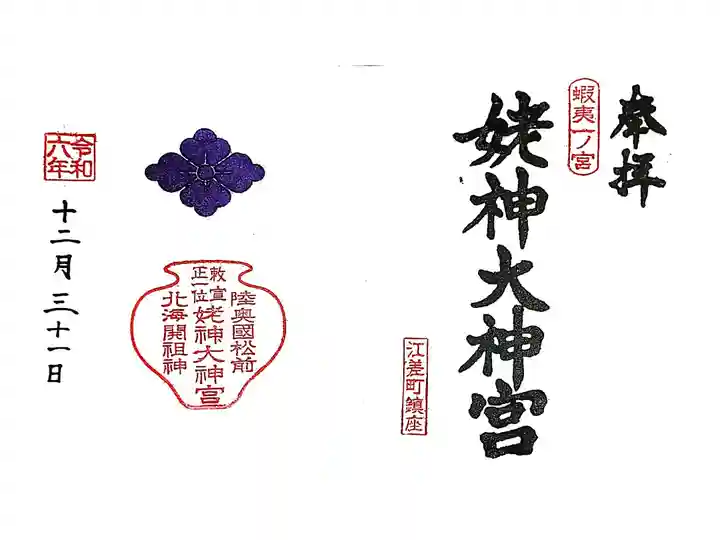 奉拝
蝦夷一ノ宮
姥神大神宮
江差町鎮座
陸奥國松前
敕宣
正一位
姥神大神宮
北海開祖神
令和
六年
十二月三十一日